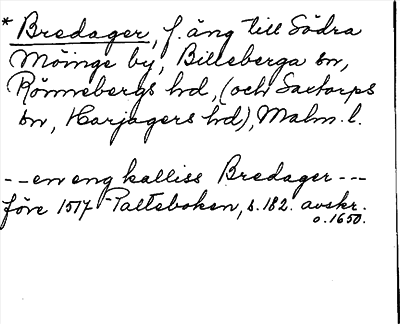 * Bredager, f. äng till Södra
Möinge by, Billeberga sn,
Rönnebergs hd, (och Saxtorps
sn, Harjagers hd), Malm. l.
-- en eng kalliss Bredager ---
före 1517 Palteboken, s. 182. avskr.
o. 1650.